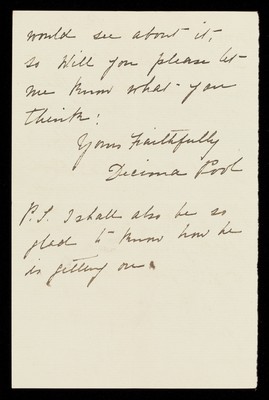 would see about it,
so will you please let
me know what you
think.
Yours Faithfully
Decima
P.S. I shall also be so
glad to know how he
is getting on.